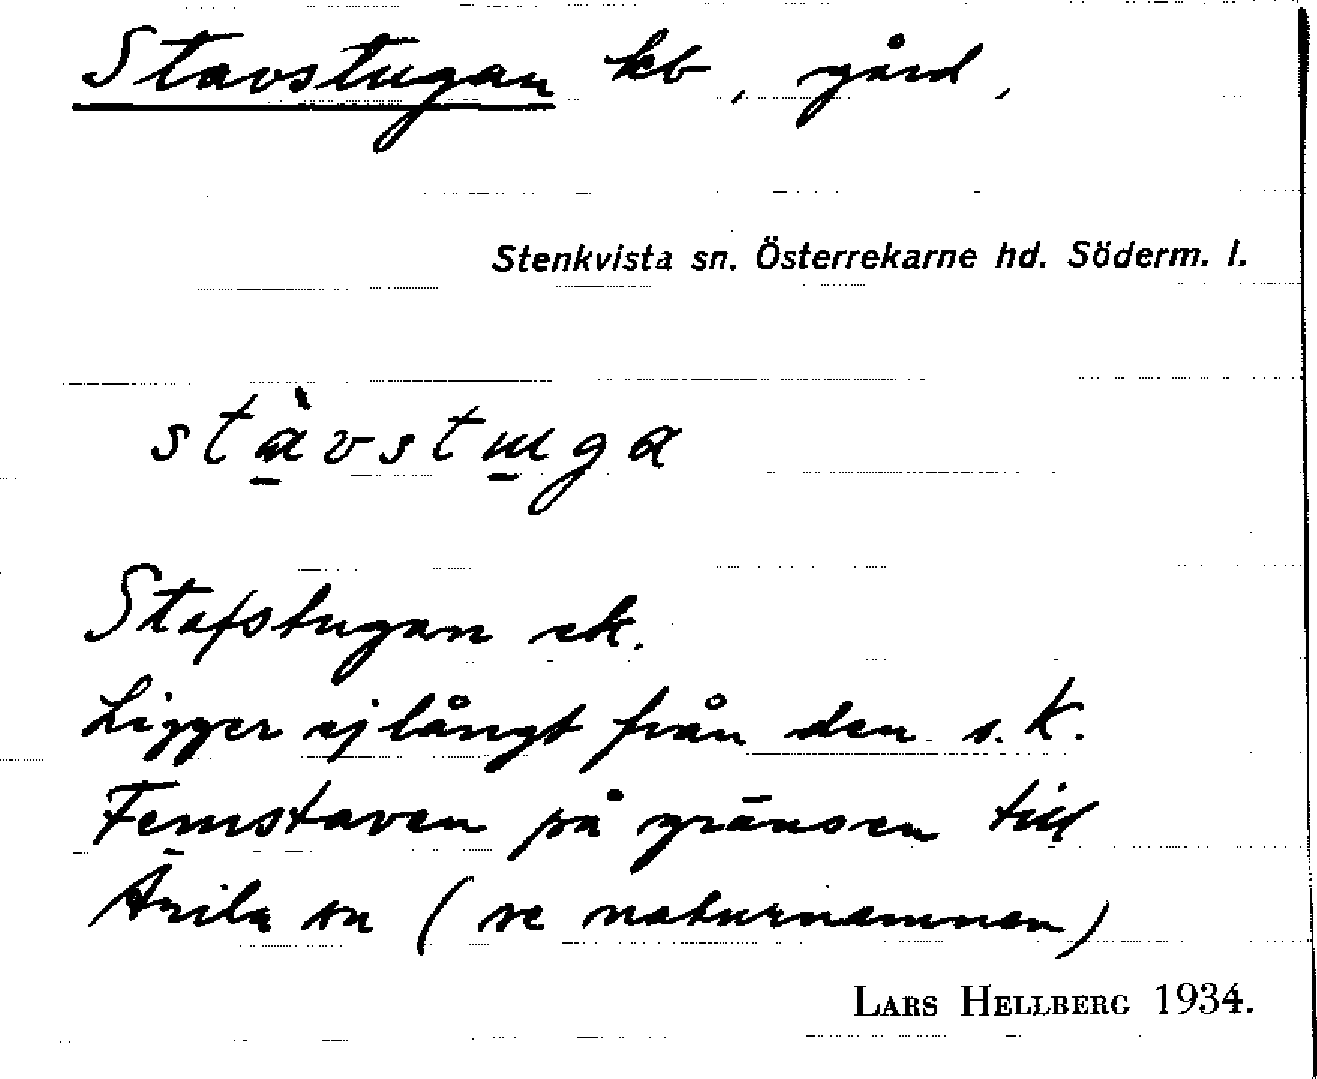 Stavstugan kb, gård,
Stenkvista sn. Österrekarne hd. Söderm. l.
stàvstuga
Stafstugan ek.
Ligger ej långt från den s. k.
Femstaven på gränsen till
Ärila sn (se naturnamnen)
LARS HELLBERG 1934.